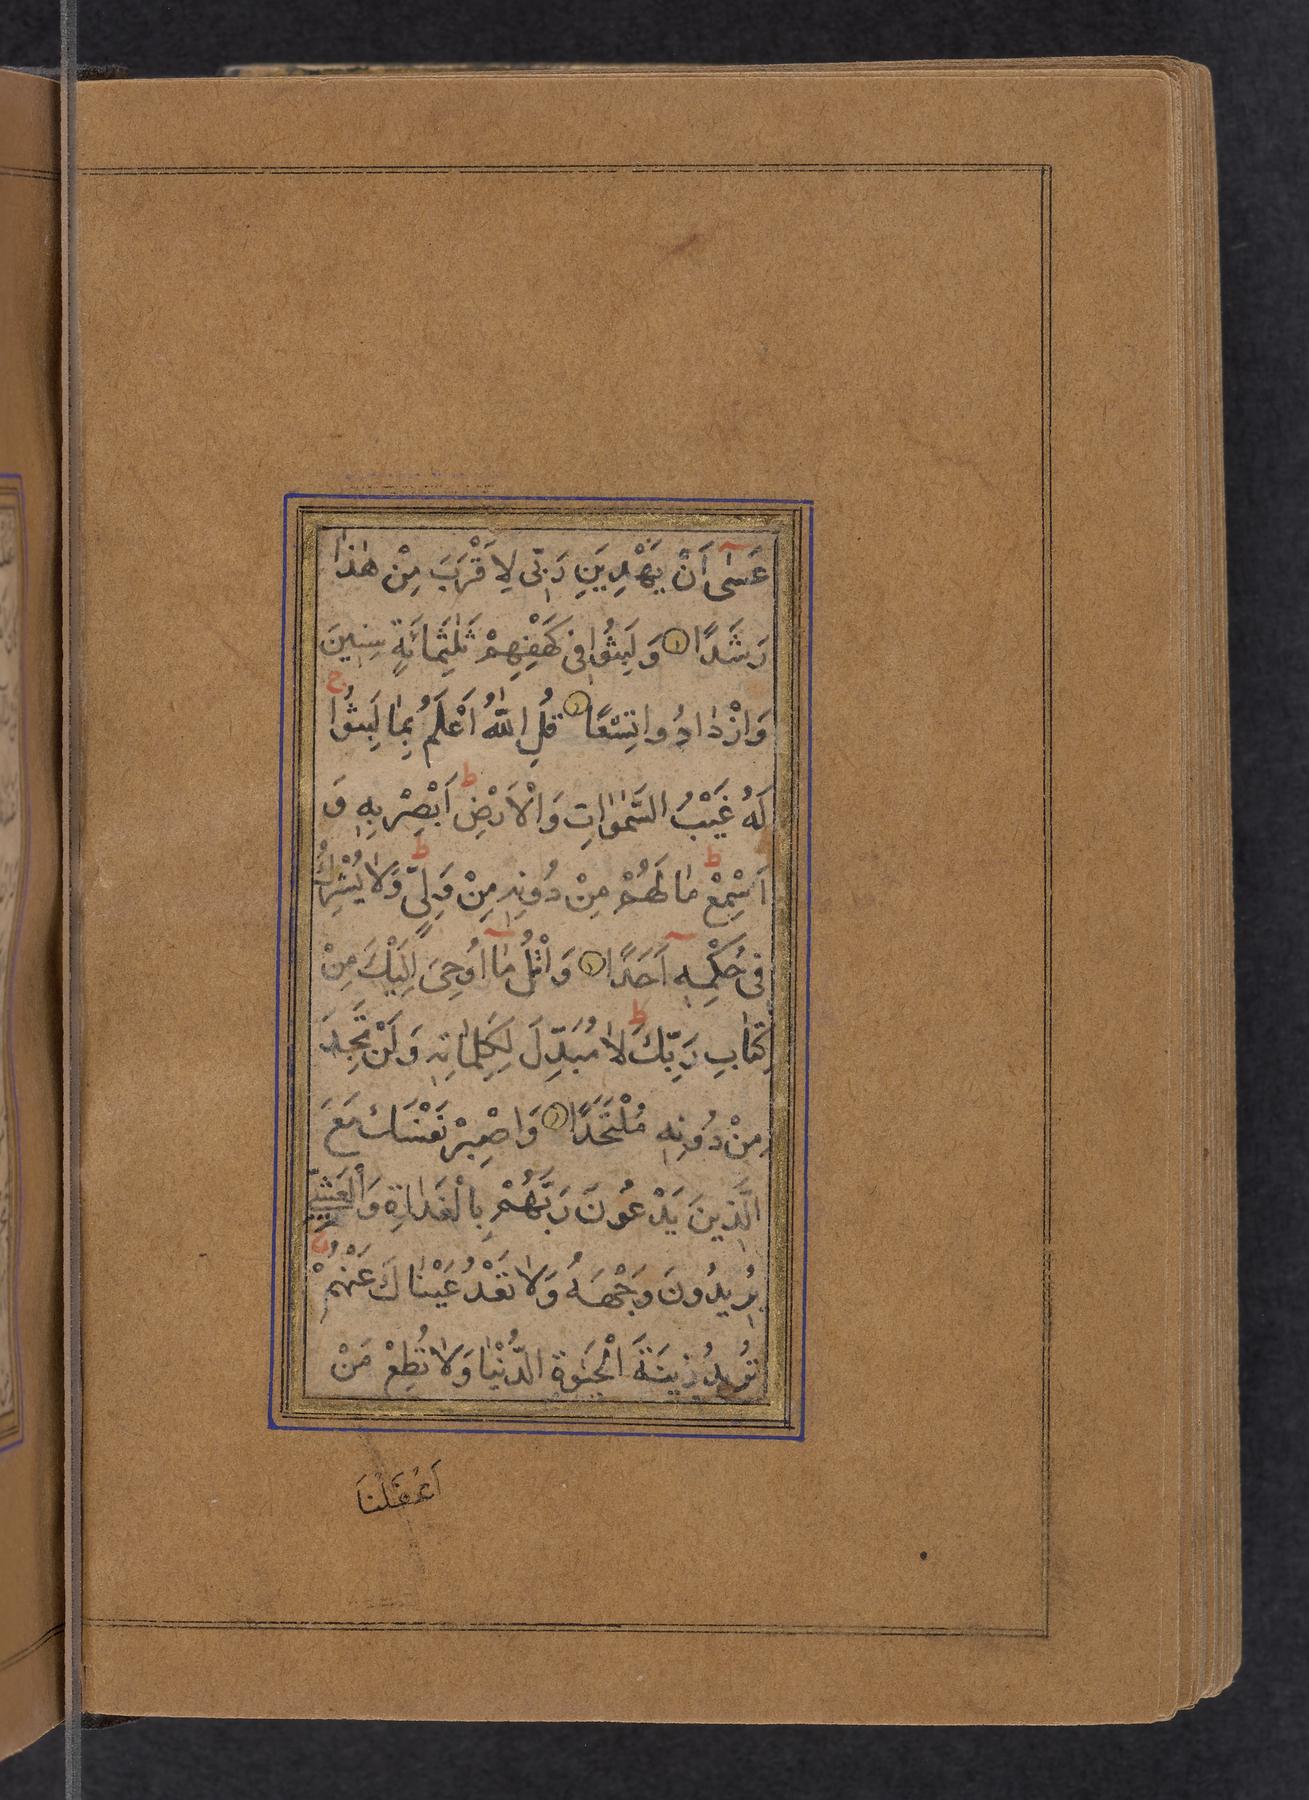 عَسٰٓى اَنْ يَهْدِيَنِ رَبّٖى لِاَقْرَبَ مِنْ هٰذٰا
رَشَدًا وَلَبِثُوا فٖى كَهْفِهِمْ ثَلٰثَمِائَةٍ سِنٖينَ
وَازْدٰادُوا تِسْعًا قُلِ اللّٰهُ اَعْلَمُ بِمٰا لَبِثُوا ج
لَهُ غَيْبُ السَّمٰوٰاتِ وَالْاَرْضِ ط اَبْصِرْ بِهٖ وَ
اَسْمِعْ ط مٰا لَهُمْ مِنْ دُونِهٖ مِنْ وَلِىٍّ ط وَلٰا يُشْرِكُ
فٖى حُكْمِهٖٓ اَحَدًا وَاتْلُ مٰٓا اُوحِىَ اِلَيْكَ مِنْ
كِتٰابِ رَبِّكَ ط لٰا مُبَدِّلَ لِكَلِمٰاتِهٖ وَلَنْ تَجِدَ
مِنْ دُونِهٖ مُلْتَحَدًا وَاصْبِرْ نَفْسَكَ مَعَ
الَّذٖينَ يَدْعُونَ رَبَّهُمْ بِالْغَدٰاةِ وَالْعَشِىِّ
يُرٖيدُونَ وَجْهَهُ وَلٰا تَعْدُ عَيْنٰاكَ عَنْهُمْ ج
تُرٖيدُ زٖينَةَ الْحَيٰوةِ الدُّنْيٰا وَلٰا تُطِعْ مَنْ
اَغْفَلْنَا